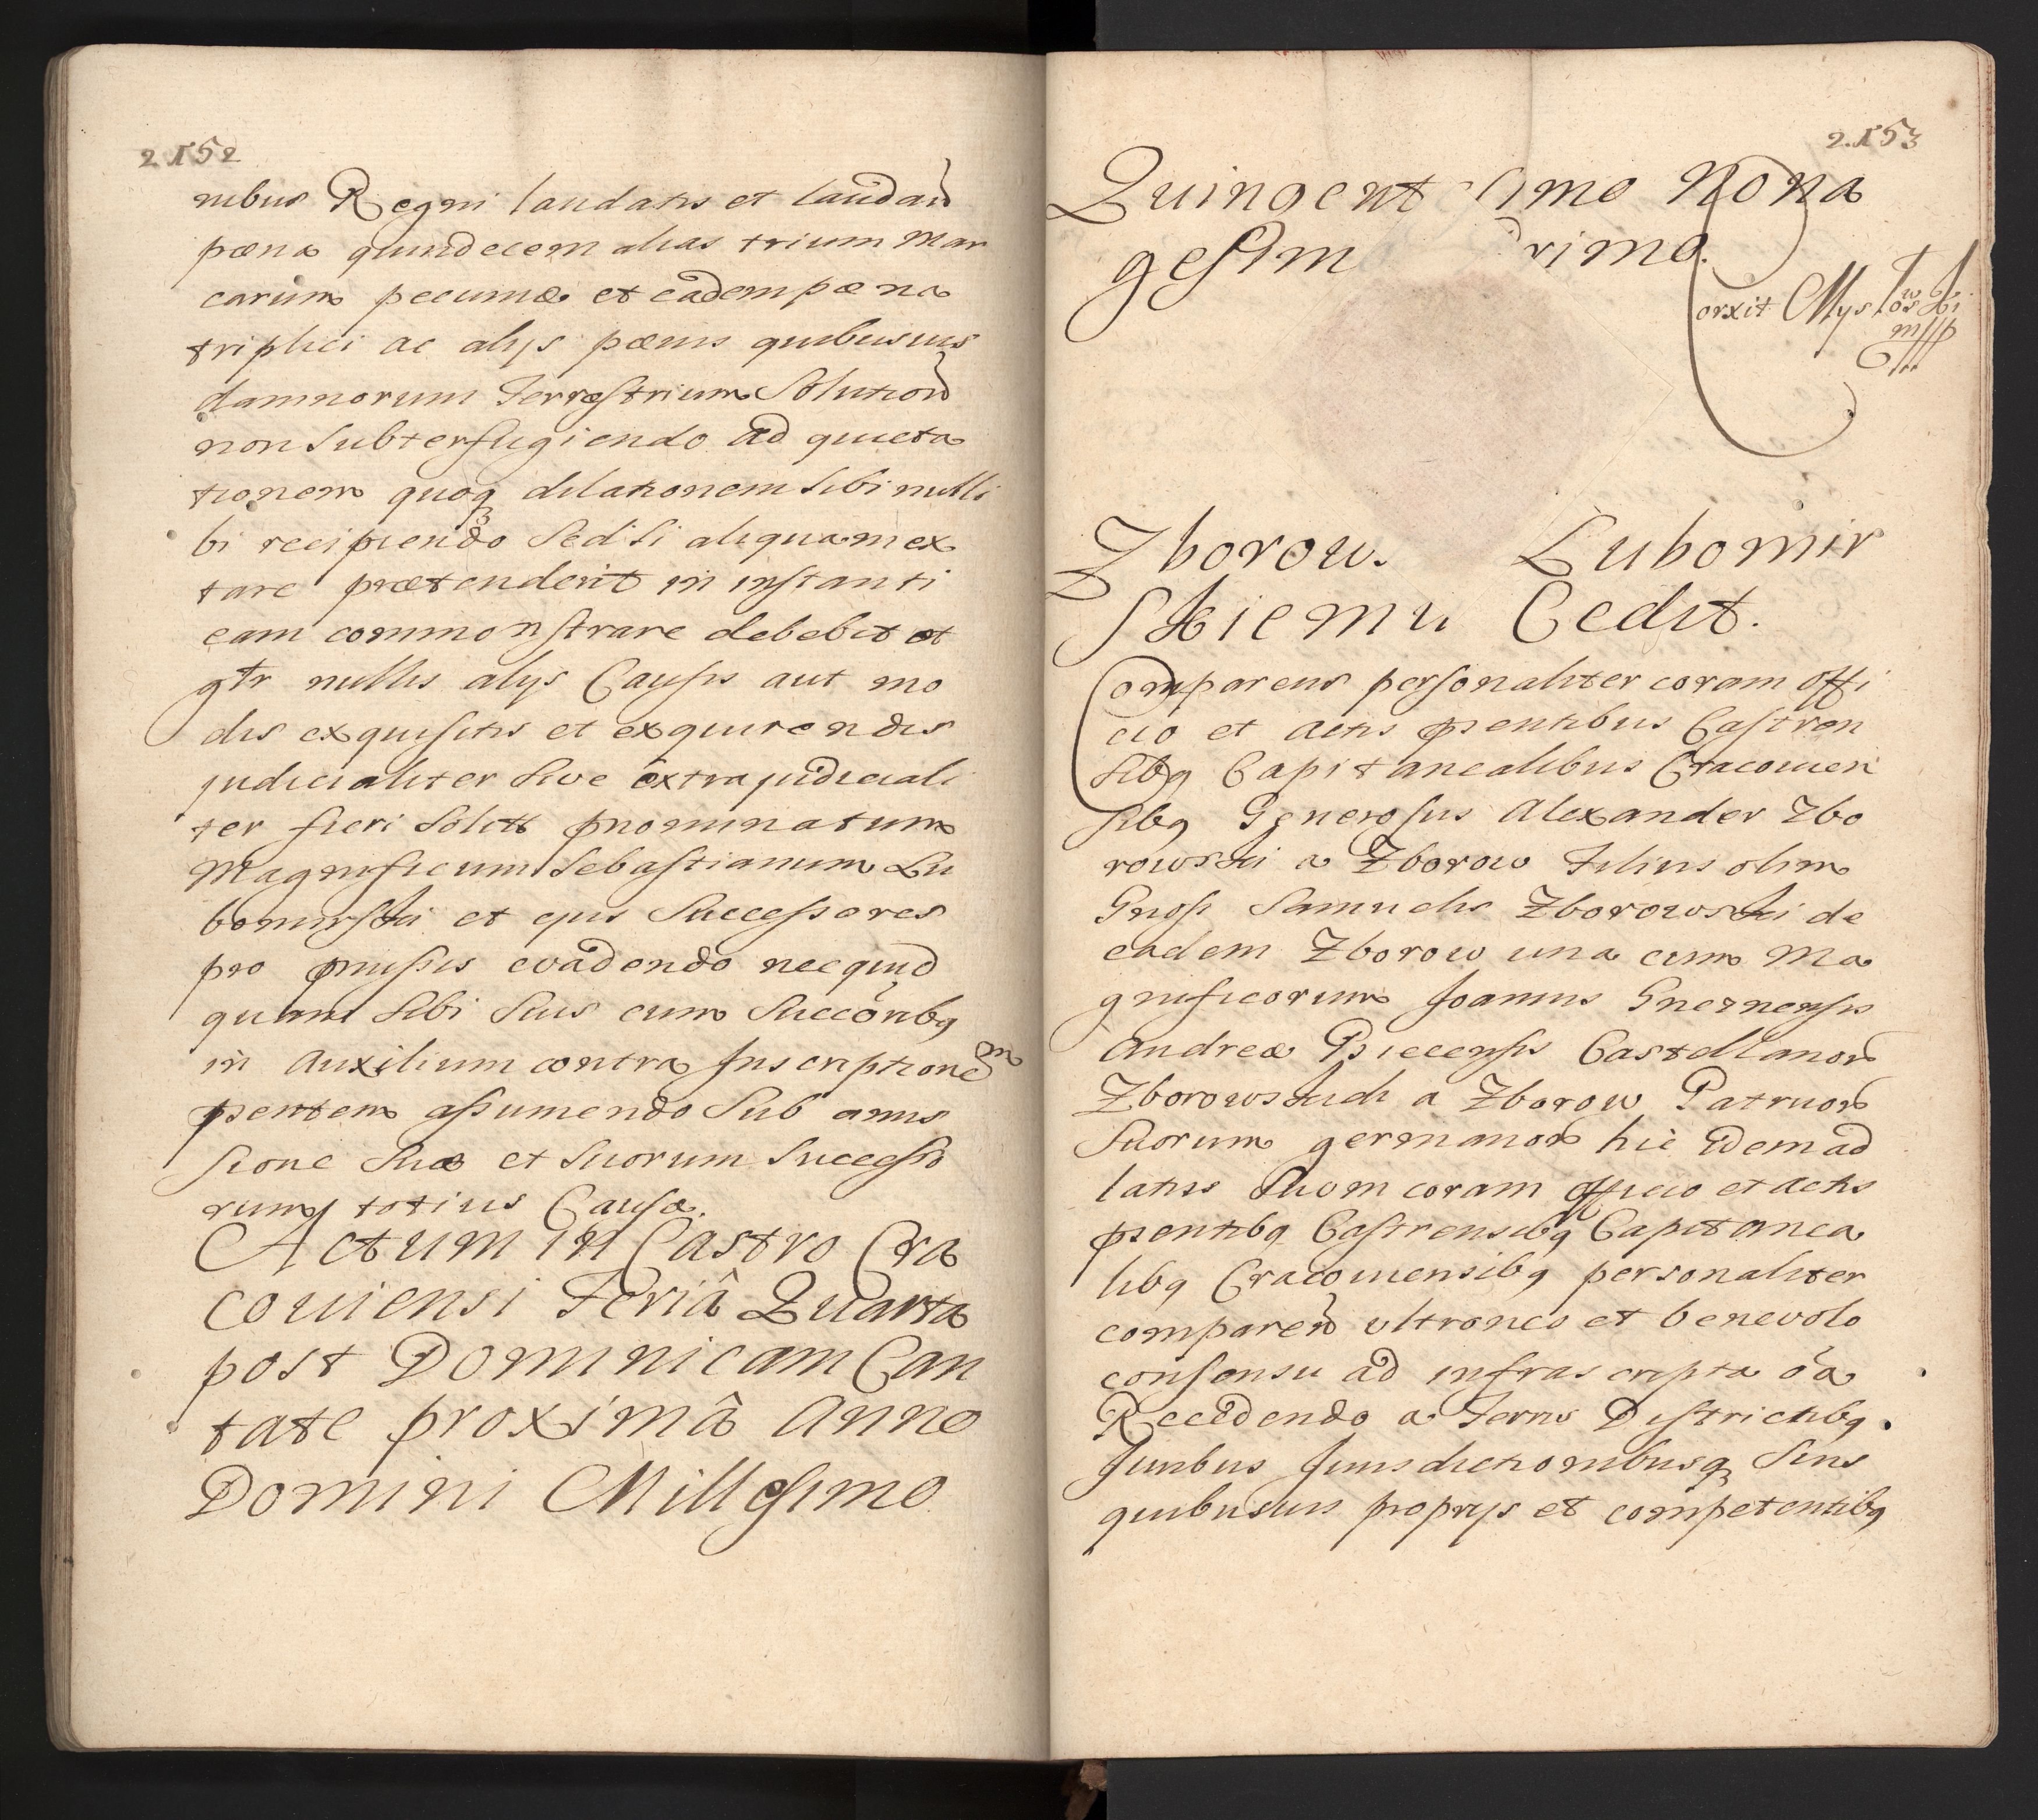 2152
nibus Regni laudatis et laudan
pæna quindecem alias trium mar
carum pecuniæ et eadem pæna
triplici ac alijs pænis quibusuis
damnorum Terrestrium Solution
non Subterfugiendo ad quieta
tionem quoq dilationem sibi nulli
bi recipiendo Sed si aliquam ex
tare prætenderit in instanti
eam commonstrare debebit et
gtr nullis alijs Causis aut mo
dis exquisitis et exquirendis
judicialiter sive extrajudiciali
ter fieri solitis pnominatum
Magnificum Sebastianum Lu
bomirski et ejus Successores
pro pmissis evadendo necquid
quam sibi suis cum Succoribq
in Auxilium contra Inscriptionem
psentem assumendo Sub amis
sione suæ et Suorum Successo
rum totius Causæ.
Actum in Castro Cra
coviensi Feriâ Quarta
post Dominicam Can
tate proximâ Anno
Domini Millesimo
2.153
Quingent simo Nona
gesim rimo.
Corxit Mystowski
mssp
Zborow. Lubomir
Skiemu Cedit.
Comparens personaliter coram offi
cio et actis psentibus Castren
sibq Capitanealibus Cracovien
sibq Generosus Alexander Zbo
rowski a Zborow Filius olim
Gnosi Samuelis Zborowski de
eadem Zborow una cum Ma
gnificorum Joannis Gneznensis
Andreæ Biecensis Castellanor
Zborowskich a Zborow Patruor
Suorum germanor hic idem ad
latus suom coram officio et actis
psentibq Castrensibq Capitanea
libq Cracoviensibq personaliter
comparen ultroneo et benevolo
consensu ad infrascripta oa
Recedendo a Terris Districtibq
Juribus Jurisdictionibusq Suis
quibusuis proprijs et competentibq